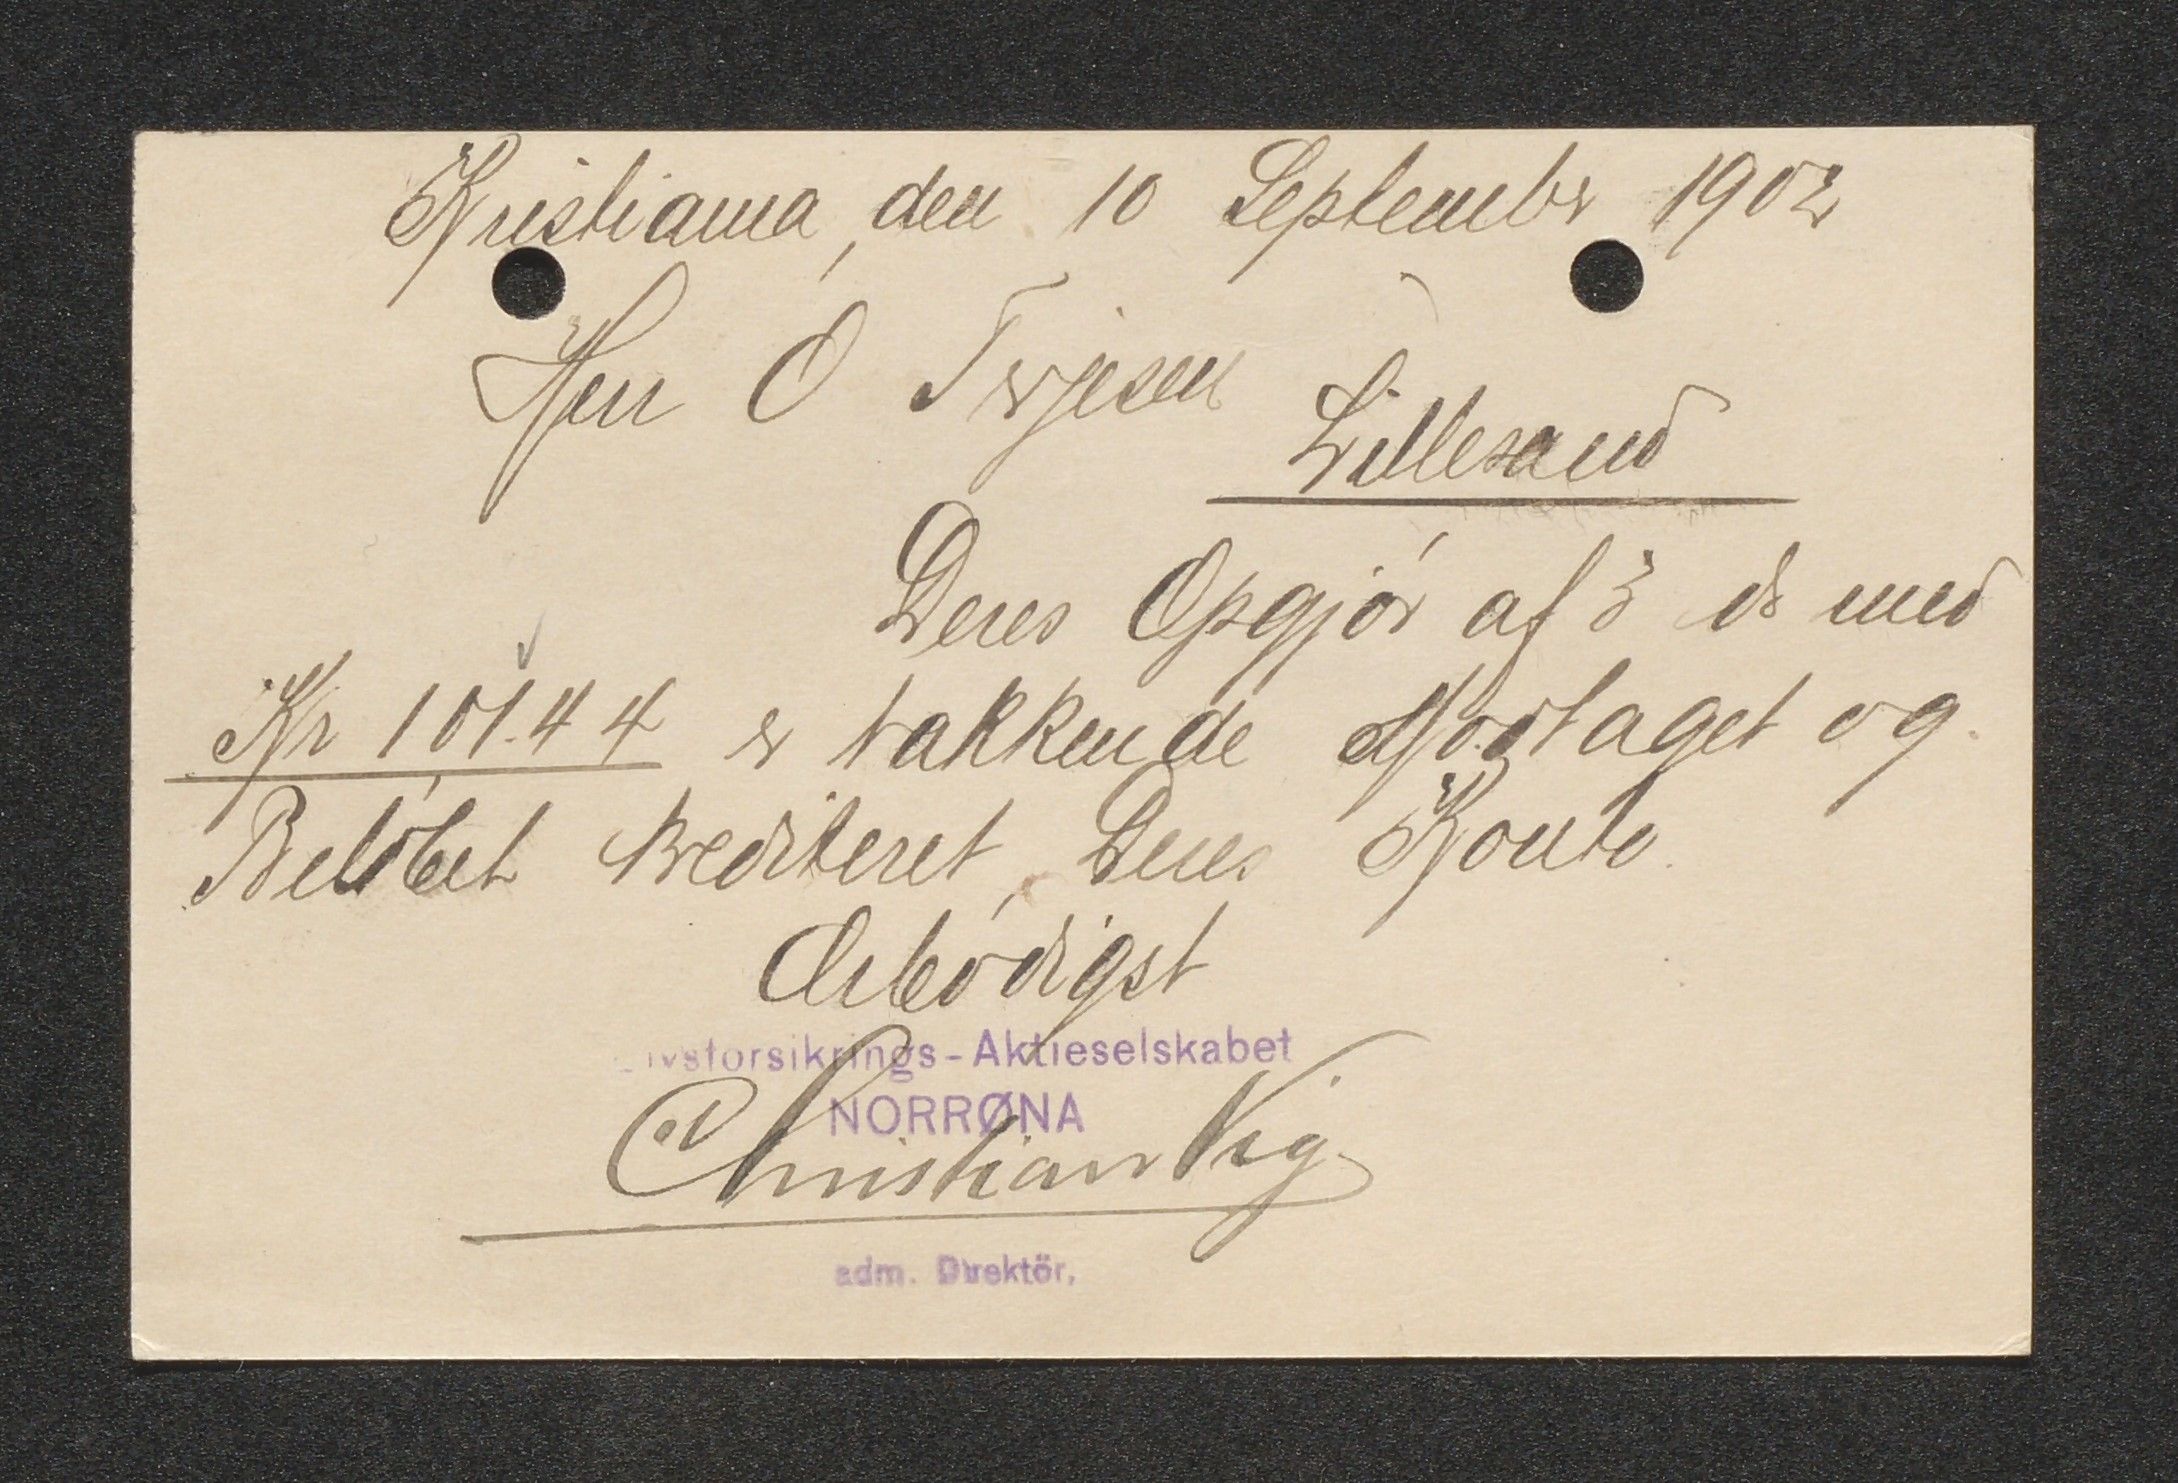 Kristiania, den 10 September 1902
Herr O Terjesen
Lillesand
Deres Opgjór af 3 ds med
Kr 101.44 er takkende Modtaget og
Belóbet krediteret Deres Konto.
Ærbódigst
Livsforsikrings-Aktieselskabet
NORRØNA
Christian Vig
adm. Direktör.